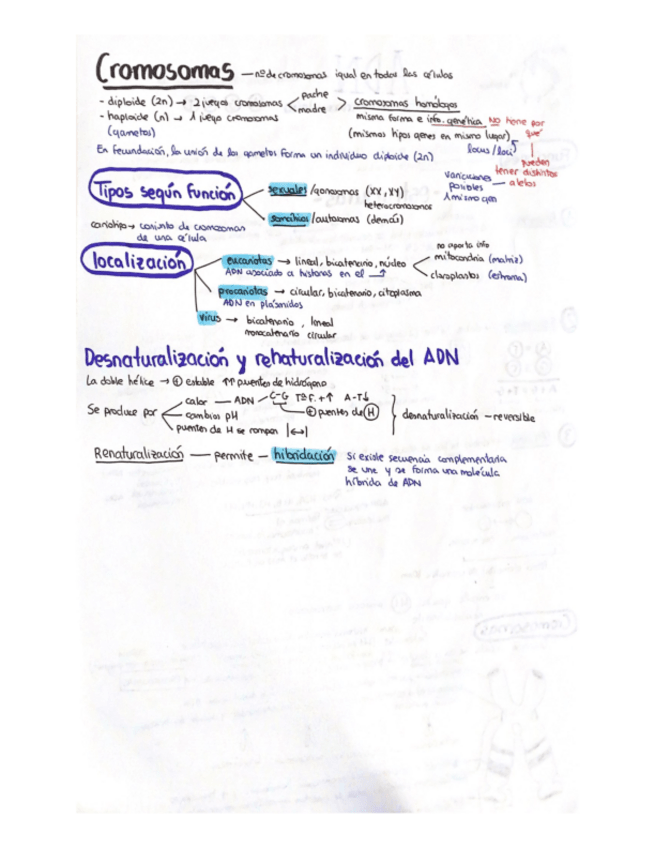 Cromosomas — nº de cromosomas igual en todas las células
- diploide (2n) → 2 juegos cromosomas < padre madre > cromosomas homólogos
- haploide (n) → 1 juego cromosomas
(gametos)
misma forma e info. genética. NO tiene por que
(mismos tipos genes en mismo lugar)
locus/loci
pueden tener distintos alelos
variaciones posibles 1 mismo gen
En fecundación, la unión de los gametos forma un individuo diploide (2n)
Tipos según función
sexuales/gonosomas (XX, XY)
heterocromosomas
somáticos/autosomas (demás)
cariotipo → conjunto de cromosomas
de una célula
localización
eucariotas → lineal, bicatenario, núcleo
ADN asociado a histonas en el
no aporta info
mitocondria (matriz)
cloroplastos (estroma)
procariotas → circular, bicatenario, citoplasma
ADN en plásmidos
virus → bicatenario, lineal
monocatenario circular
Desnaturalización y renaturalización del ADN
La doble hélice → + estable ↑↑ puentes de hidrógeno
Se produce por
calor — ADN
C-G Tª F. +↑ A-T↓
+ puentes de H
cambios pH
puentes de H se rompen |↔|
desnaturalización — reversible
Renaturalización — permite — hibridación
Si existe secuencia complementaria
se une y se forma una molécula
híbrida de ADN